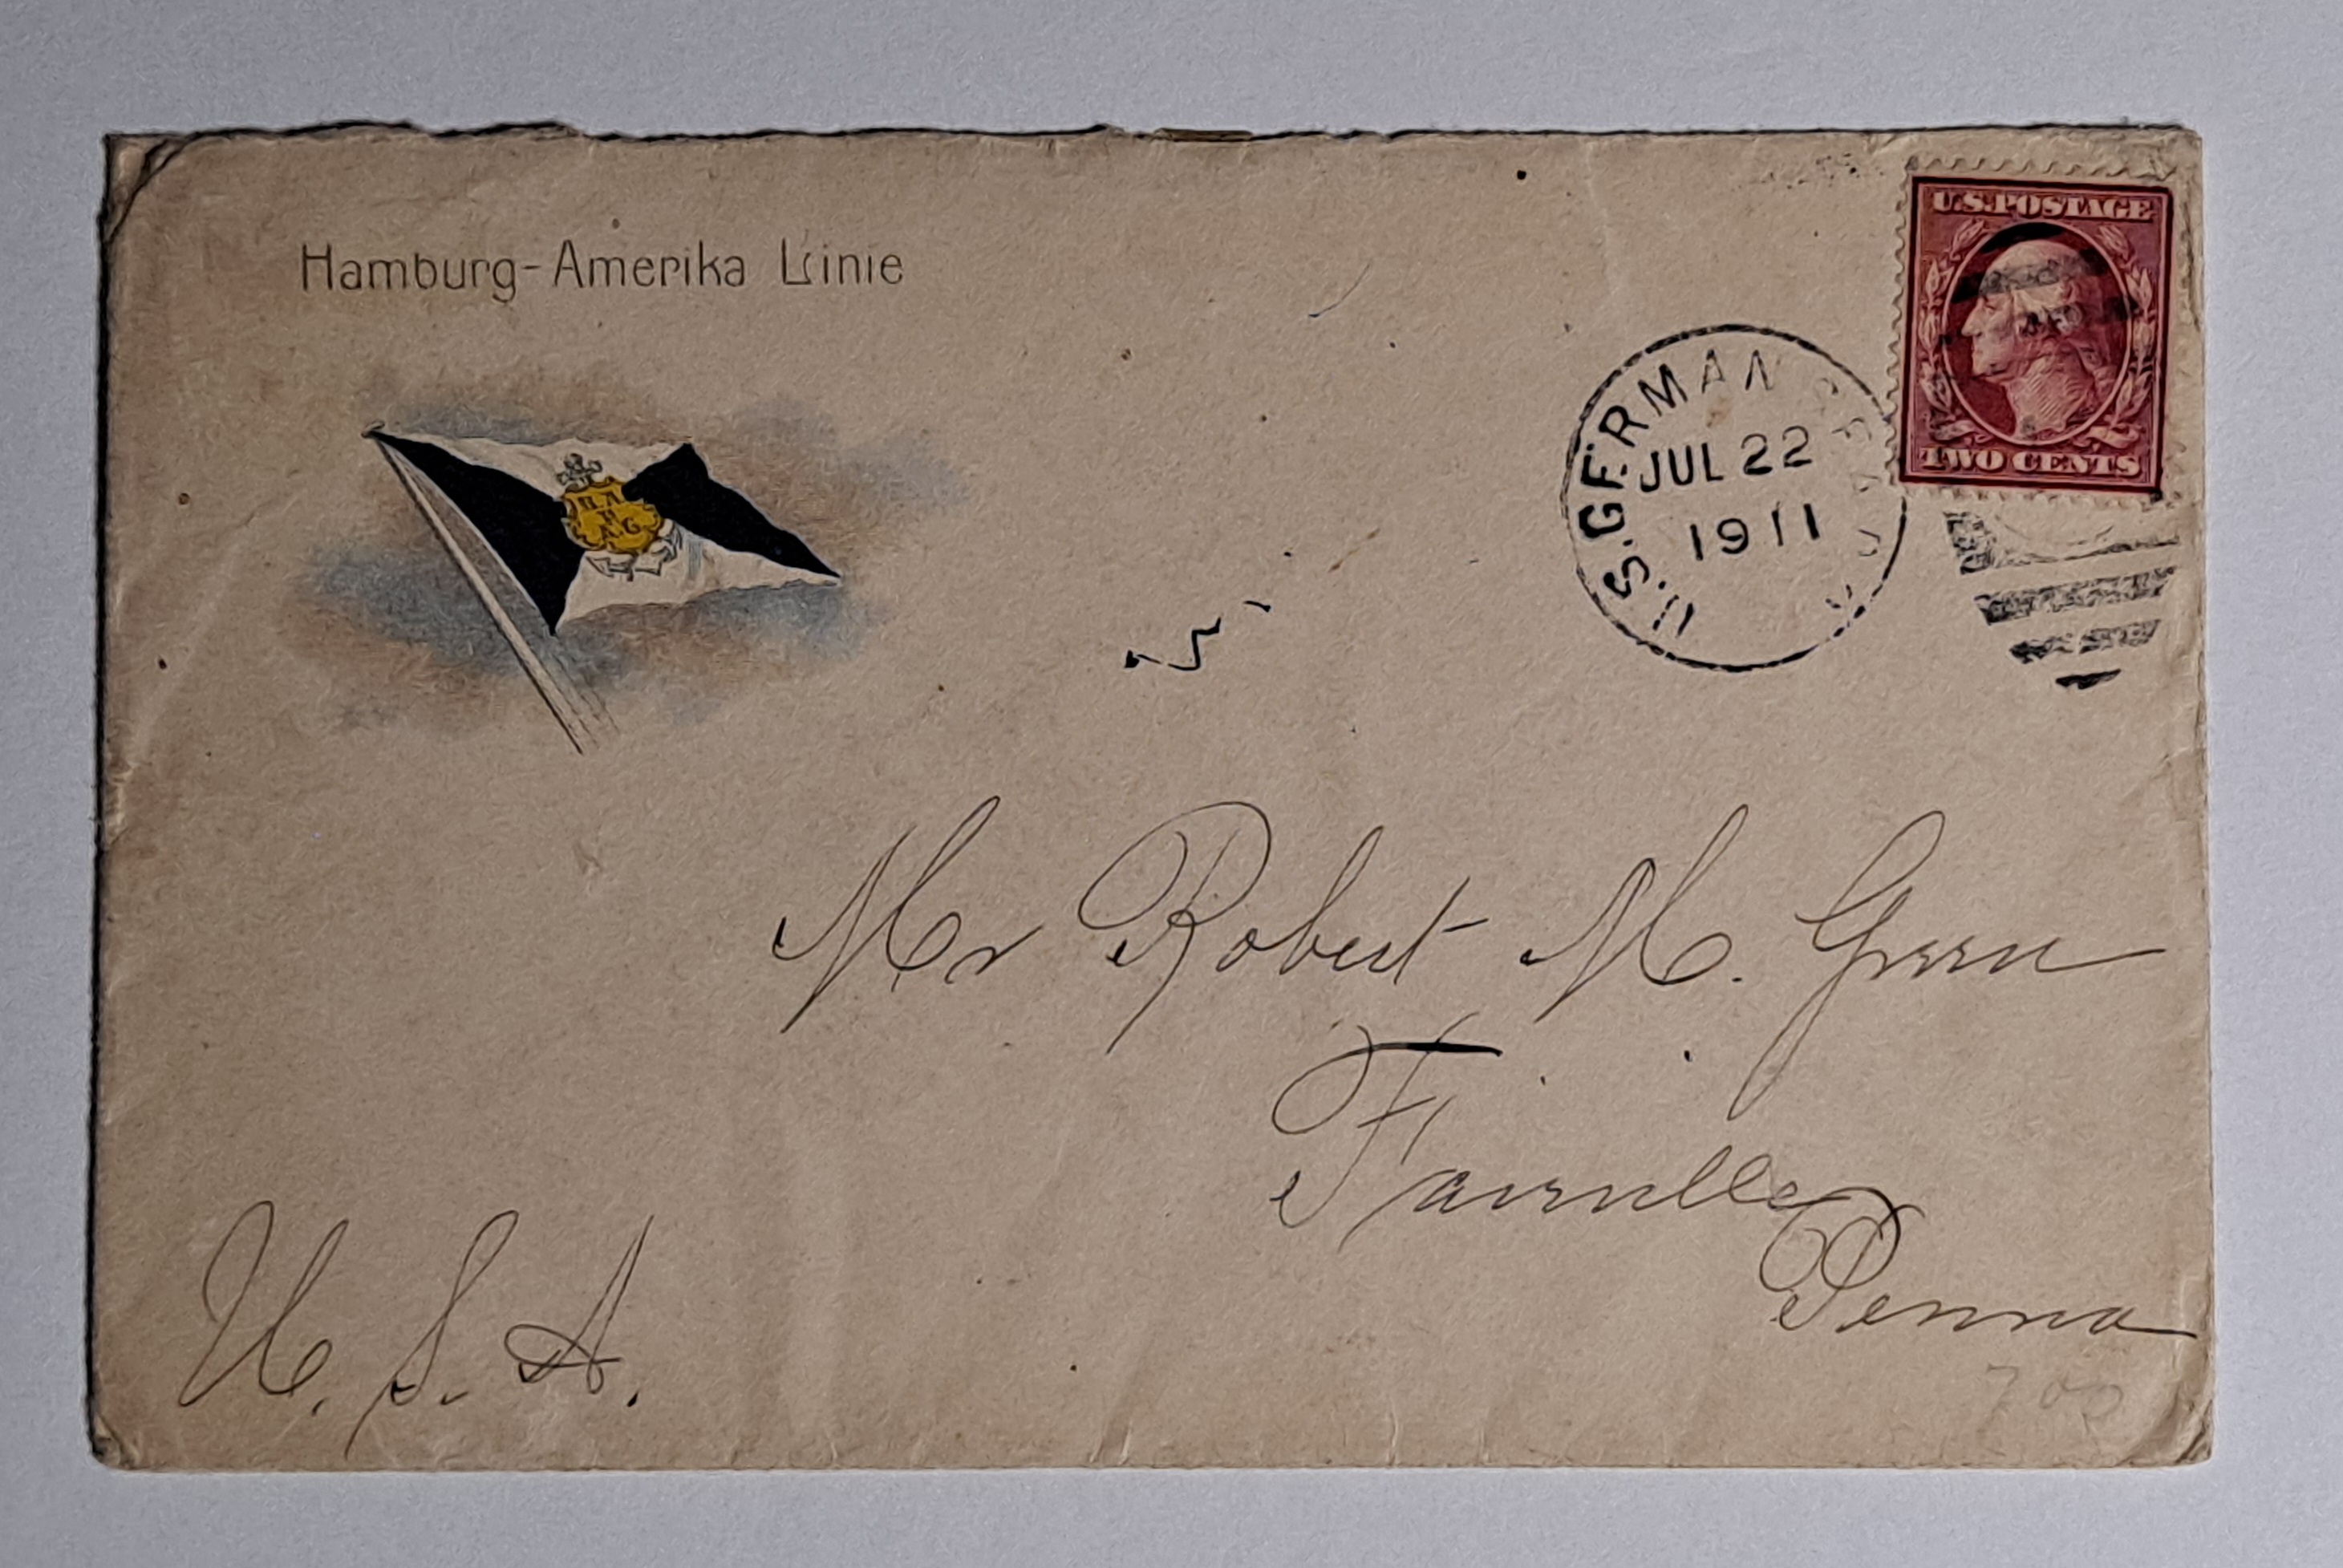 Hamburg-Amerika Linie
H.A.
P.
A.G.
U.S. POSTAGE
TWO CENTS
U.S. GERMAN SEA
JUL 22
1911
Mr Robert M. Green
Fairville
Penna
U. S. A.